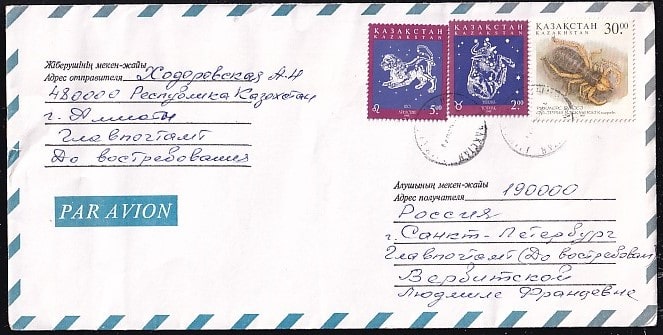 ҚАЗАҚСТАН
KAZAKHSTAN
5.00
ҚАЗАҚСТАН
KAZAKHSTAN
2.00
ҚАЗАҚСТАН
KAZAKHSTAN
30.00
Жіберушінің мекен-жайы
Адрес отправителя Ходоровская А.Н
480000 Республика Казахстан
г. Алматы
Главпочтамт
До востребования
PAR AVION
Алушының мекен-жайы
Адрес получателя 190000
Россия
г. Санкт-Петербург
Главпочтамт (До востребован
Вербитской
Людмиле Франдевне